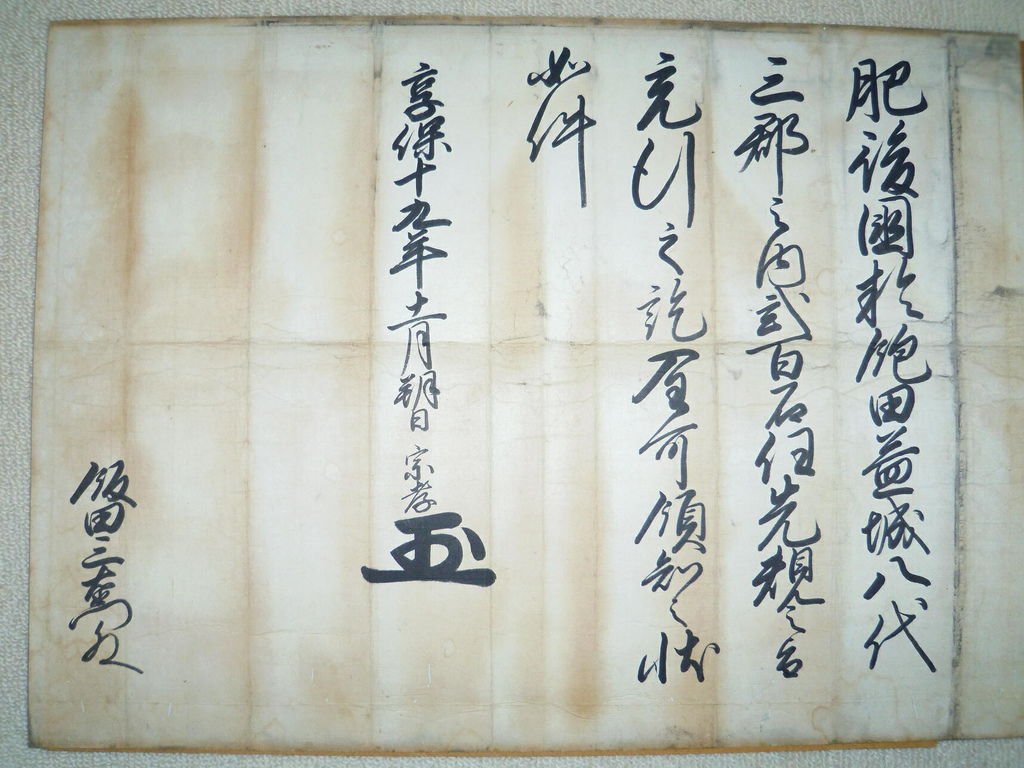 肥後國於飽田益城八代
三郡之内弐百石任先規之旨
充行之訖全可領知之状
如件
享保十九年十一月朔日 宗孝
飯田三右衛門殿